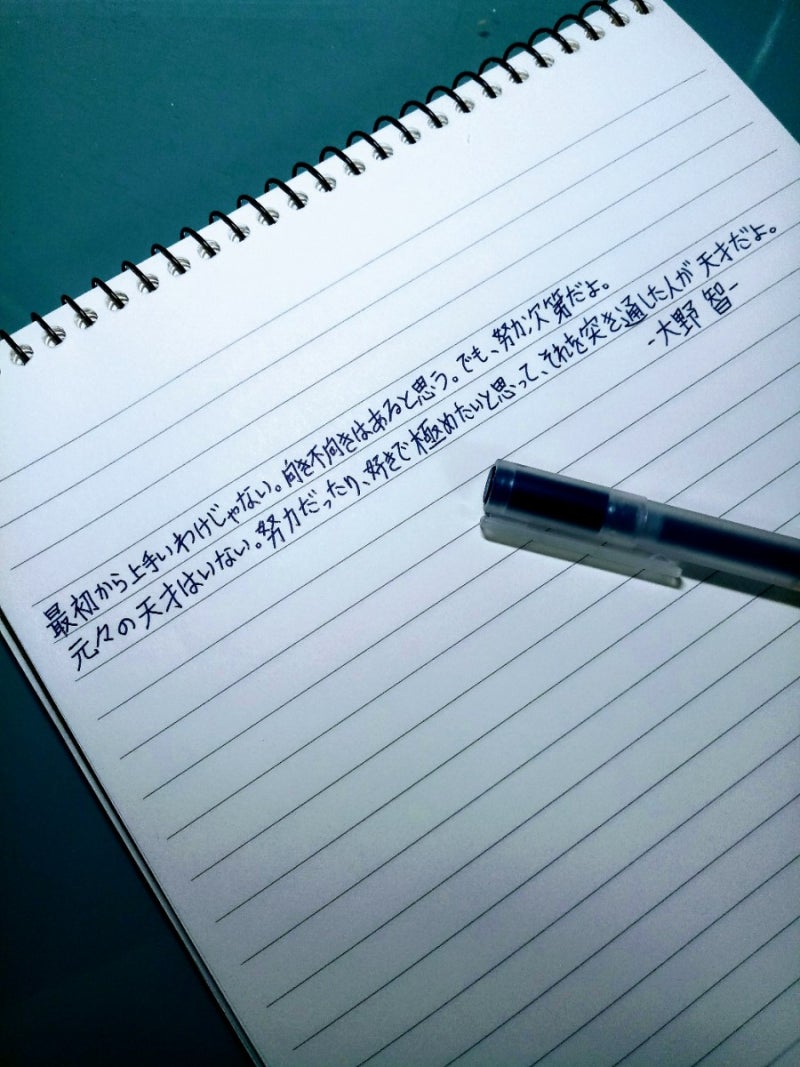 最初から上手いわけじゃない。向き不向きはあると思う。でも、努力次第だよ。
元々の天才はいない。努力だったり、好きで極めたいと思って、それを突き通した人が天才だよ。
-大野 智-